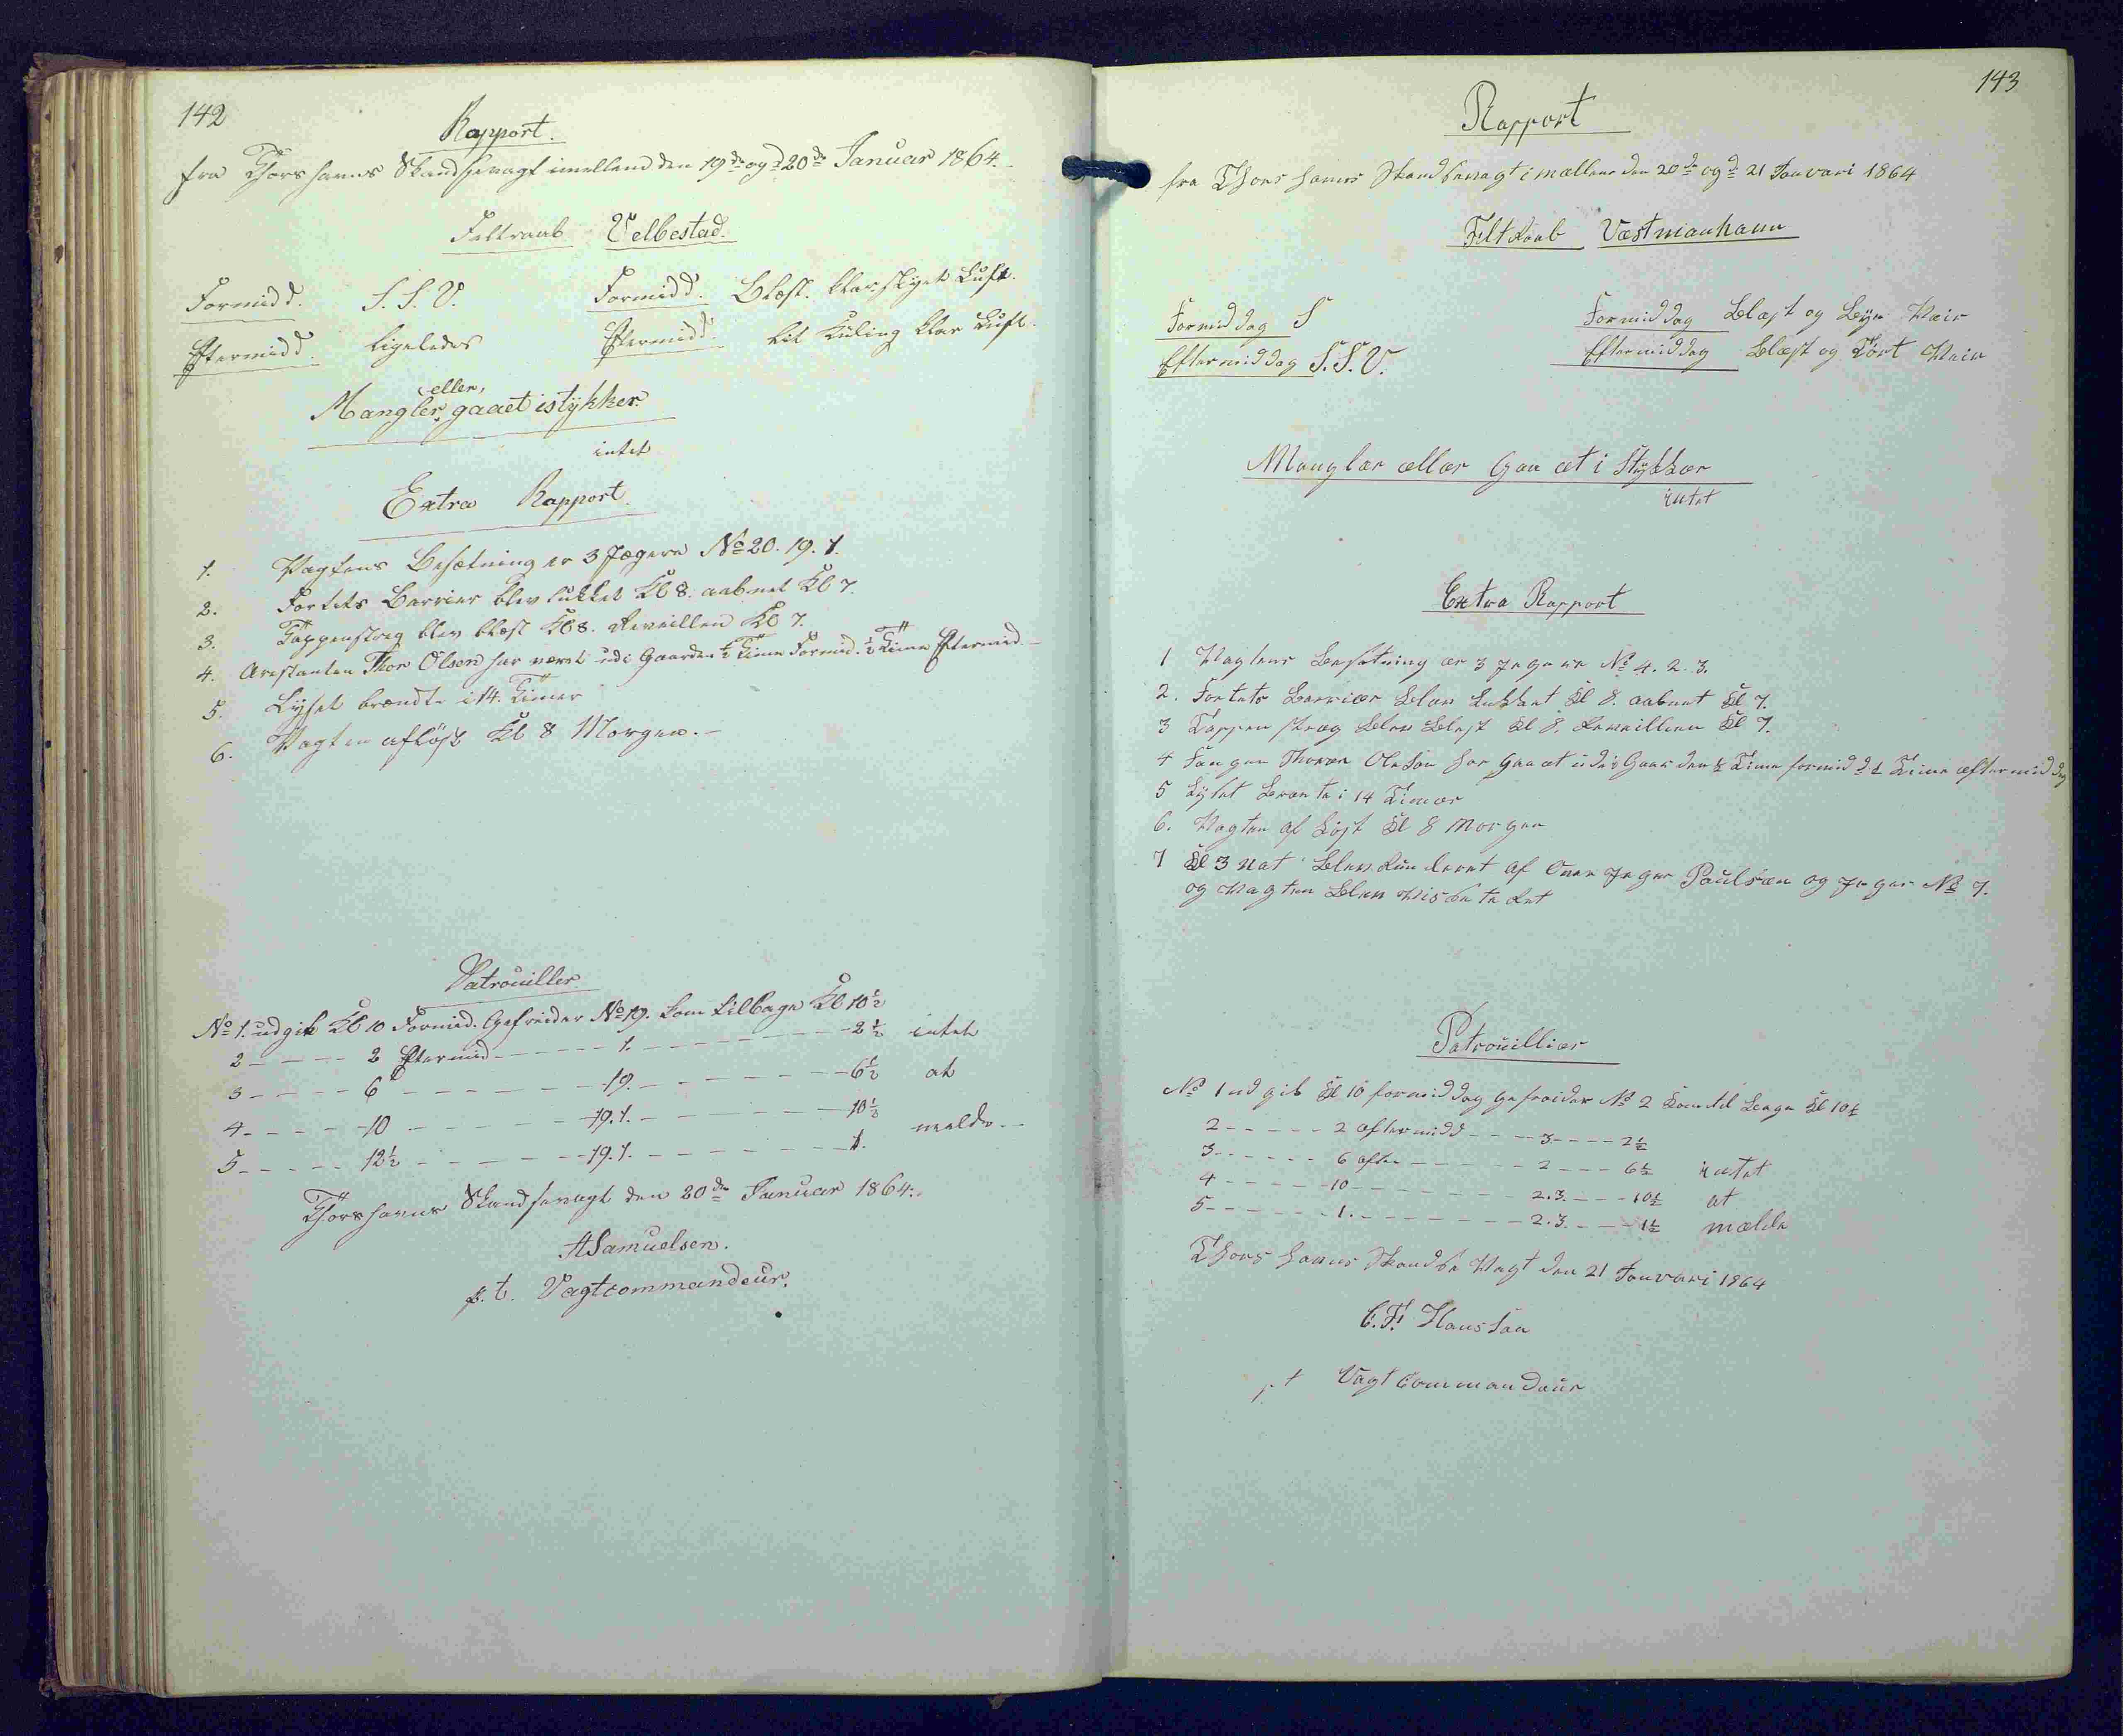 142
Rapport.
fra Thorshavns Skandsevagt imellem den 19de og 20de Januar 1864.
Feltraab Velbestad.
Formidd. S. S. V. Formidd. Blæst. klar skyet Luft.
Eftermidd. ligeledes Eftermidd. lit Kuling klar Luft.
Mangler eller, gaaet istykker.
intet
Extra Rapport.
1. Vagtens Besætning er 3 Jægere No 20. 19. 1.
2. Fortets Barrier blev lukket Kl 8. aabnet Kl 7.
3. Tappenstreg blev blæst Kl 8. Reveillen Kl 7.
4. Arestanten Thor Olsen har været udi Gaarden ½ Time Formid. ½ Time Eftermid.
5. Lyset brændte i 14. Timer
6. Vagten aflöst Kl 8 Morgen.
Patrouiller.
No 1. udgik Kl 10 Formid. Gefreider No 19. kom tilbage Kl 10½
2 - - - - 2 Eftermid - - - - - 1. - - - - - - 2½ intet
3 - - - - 6 - - - - - 19. - - - - - - 6½ at
4 - - - - 10 - - - - - 19. 1. - - - - - - 10½
5 - - - - 12½ - - - - - 19. 1. - - - - - - 1. melde.
Thorshavns Skandsevagt den 20de Januar 1864.
A Samuelsen.
p. t. Vagtcommandeur.
143
Rapport
fra Thors havns Skandsevagt i mællem den 20de og d 21 Januari 1864
Felt Raab Væstmanhavn
Formiddag S Formiddag Blæst og Bye Veir
Eftermiddag S. S. V. Eftermiddag Blæst og Tört Veir
Manglær ællær Gaa æt i Stykkær
intet
Extra Rapport
1 Vagtens Besætning ær 3 Jegere No 4. 2. 3.
2. Fortets Barriær Blev Lukket Kl 8. aabnet Kl 7.
3 Tappen stræg Blev Blæst Kl 8. Reveillien Kl 7.
4 Fangen Thorer Olesen har Gaa æt udi Gaarden ½ Time formidd ½ Time æftermiddag
5 Lyset Brænte i 14 Timær
6. Vagten af Löst Kl 8 Morgen
7 Kl 3 nat Blev Runderet af Over Jeger Paulsæn og Jeger No 7.
og Vagten Blev Visenteret
Patrouilliær
No 1 ud gik Kl 10 formiddag gefreider No 2 Kom til Bage Kl 10½
2 - - - - - 2 æftermidd - - - 3 - - - - 2½
3 - - - - - 6 æfte - - - - - 2 - - - 6½ intet
4 - - - - - 10 - - - - - - 2. 3. - - - 10½ at
5 - - - - - 1. - - - - - - 2. 3. - - - 1½ mælde
Thors havns Skandse Vagt den 21 Januari 1864
C. F. Hansen
p t Vagt Commandeur